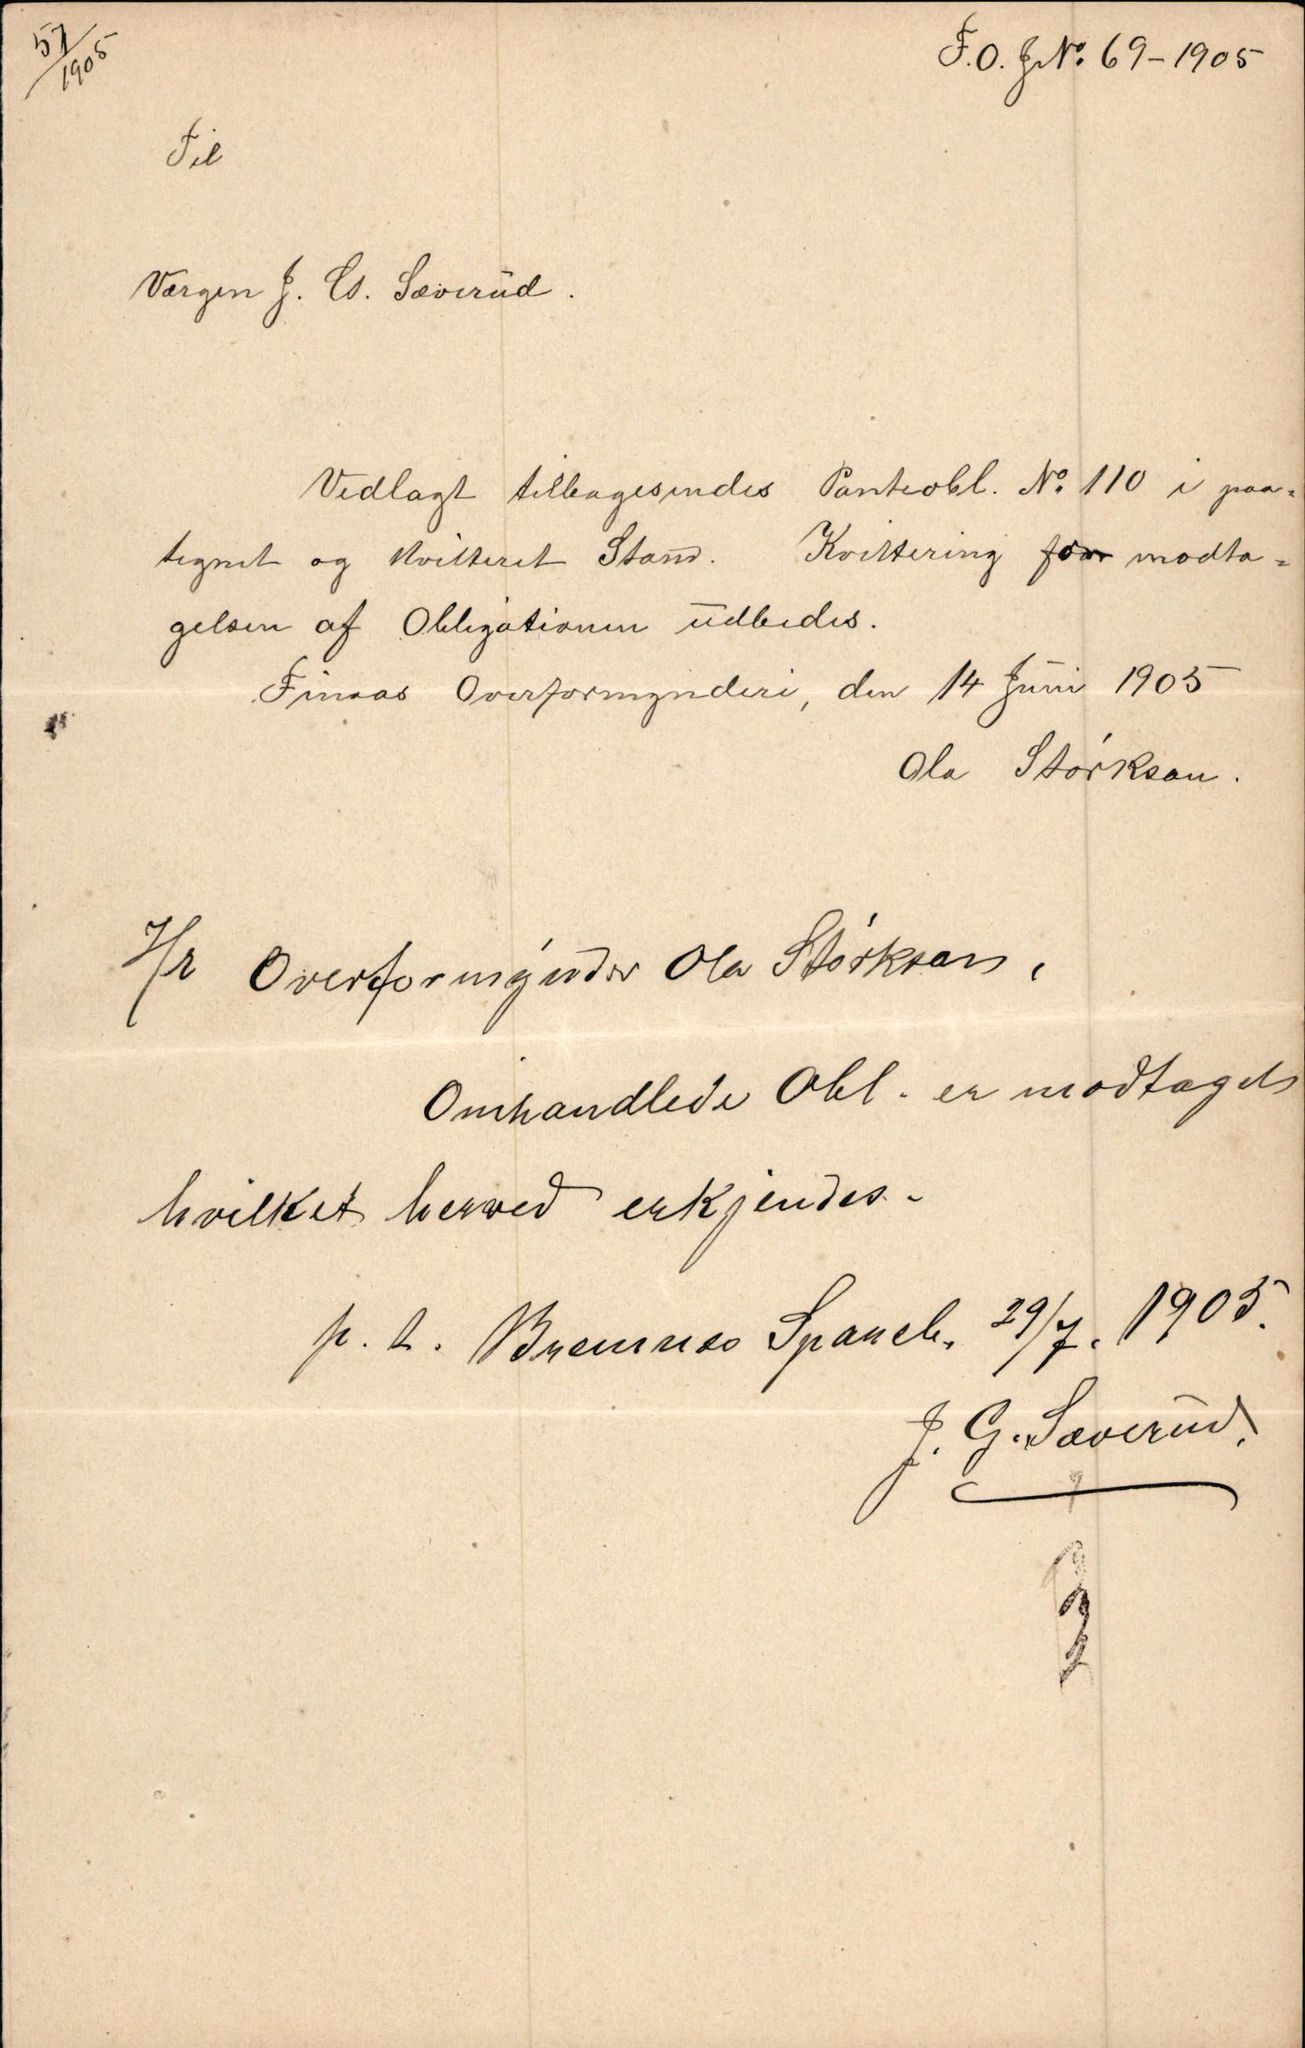 57/1905
F. O. J.No. 69-1905
Til
Værgen J. G. Sæverud.
Vedlagt tilbagesendes Panteobl. No. 110 i paa-
tegnet og kvitteret Stand. Kvittering for modta-
gelsen af Obligationen udbedes.
Finaas Overformynderi, den 14 Juni 1905
Ola Størksøn.
Hr Overformynder Ola Størksøn,
Omhandlede Obl. er modtaget
hvilket herved erkjendes.
p. t. Bremnes Spareb. 29/7. 1905.
J. G. Sæverud.